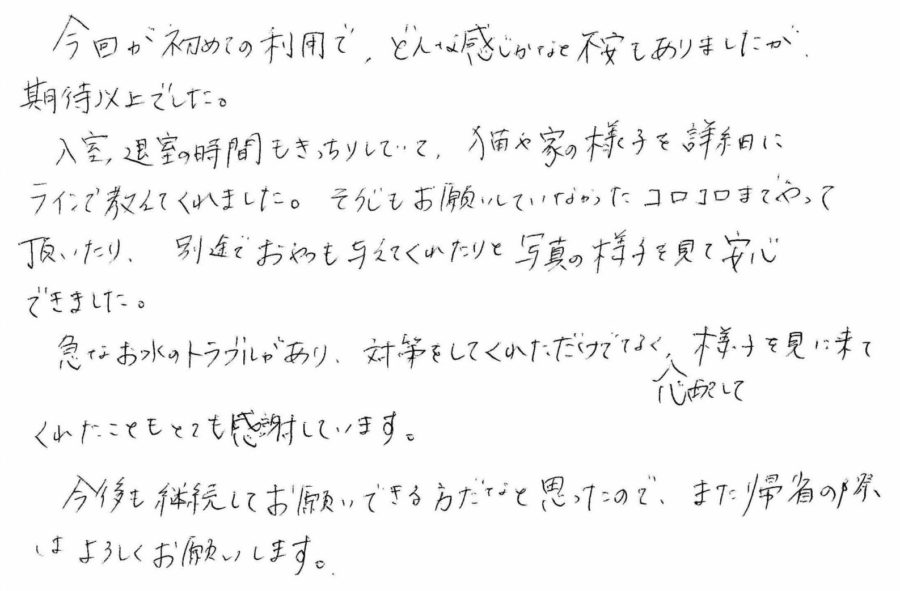 今回が初めての利用で、どんな感じかなと不安もありましたが、
期待以上でした。
入室、退室の時間もきっちりしていて、猫や家の様子を詳細に
ラインで教えてくれました。そうじもお願いしていなかったコロコロまでやって
頂いたり、別途でおやつも与えてくれたりと写真の様子を見て安心
できました。
急なお水のトラブルがあり、対策をしてくれただけでなく、様子を見に来て
心配して
くれたこともとても感謝しています。
今後も継続してお願いできる方だなと思ったので、また帰省の際
はよろしくお願いします。